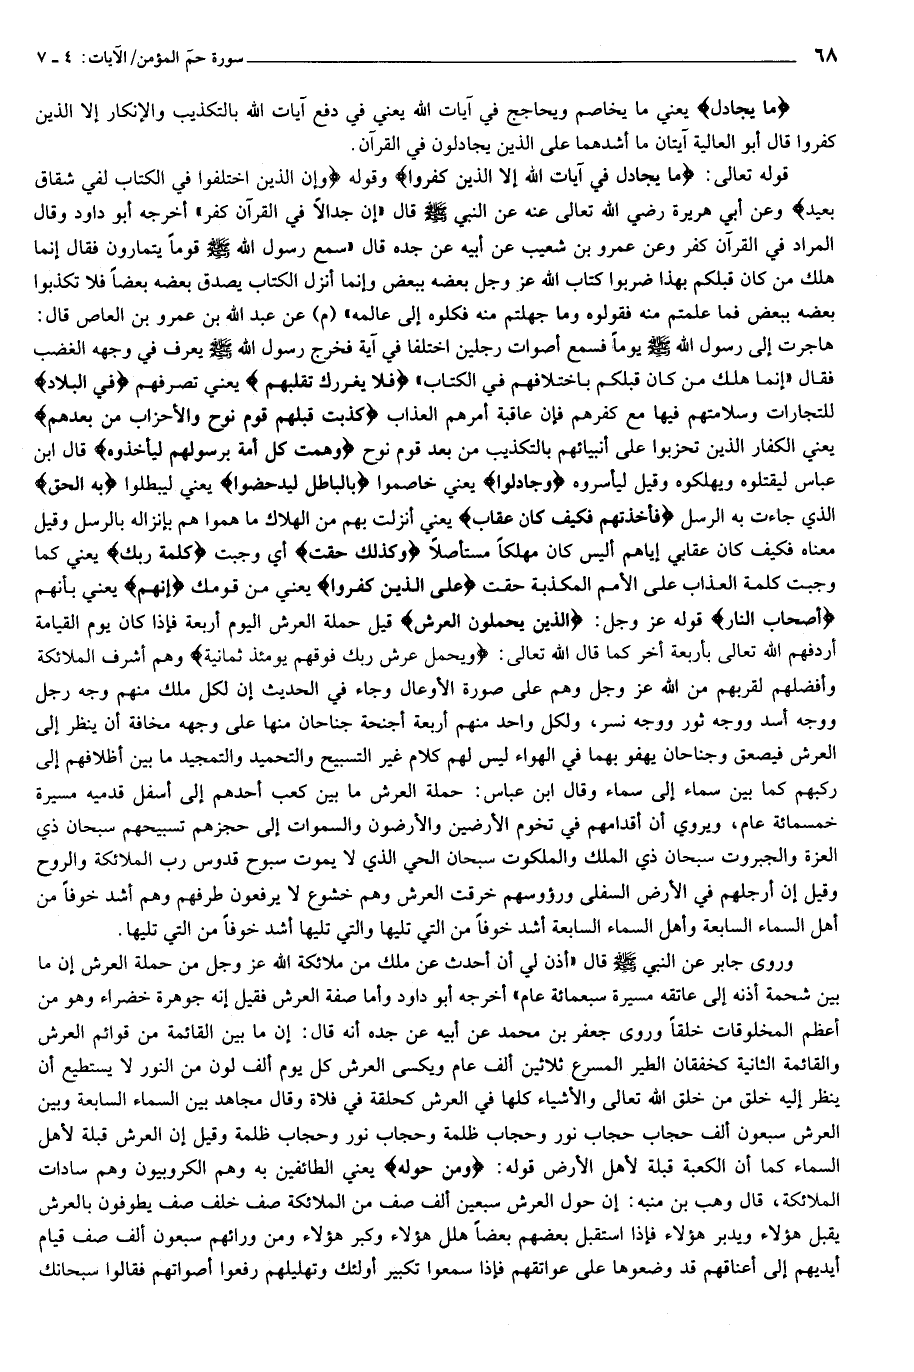 ٦٨ سورة حمۤ المؤمن/ الآيات: ٤ ـ ٧
﴿ما يجادل﴾ يعني ما يخاصم ويحاجج في آيات الله يعني في دفع آيات الله بالتكذيب والإنكار إلا الذين
كفروا قال أبو العالية آيتان ما أشدهما على الذين يجادلون في القرآن.
قوله تعالى: ﴿ما يجادل في آيات الله إلا الذين كفروا﴾ وقوله ﴿وإن الذين اختلفوا في الكتاب لفي شقاق
بعيد﴾ وعن أبي هريرة رضي الله تعالى عنه عن النبي ﷺ قال «إن جدالاً في القرآن كفر» أخرجه أبو داود وقال
المراد في القرآن كفر وعن عمرو بن شعيب عن أبيه عن جده قال «سمع رسول الله ﷺ قوماً يتمارون فقال إنما
هلك من كان قبلكم بهذا ضربوا كتاب الله عز وجل بعضه ببعض وإنما أنزل الكتاب يصدق بعضه بعضاً فلا تكذبوا
بعضه ببعض فما علمتم منه فقولوه وما جهلتم منه فكلوه إلى عالمه» (م) عن عبد الله بن عمرو بن العاص قال:
هاجرت إلى رسول الله ﷺ يوماً فسمع أصوات رجلين اختلفا في آية فخرج رسول الله ﷺ يعرف في وجهه الغضب
فقال «إنما هلك من كان قبلكم باختلافهم في الكتاب» ﴿فلا يغررك تقلبهم﴾ يعني تصرفهم ﴿في البلاد﴾
للتجارات وسلامتهم فيها مع كفرهم فإن عاقبة أمرهم العذاب ﴿كذبت قبلهم قوم نوح والأحزاب من بعدهم﴾
يعني الكفار الذين تحزبوا على أنبيائهم بالتكذيب من بعد قوم نوح ﴿وهمت كل أمة برسولهم ليأخذوه﴾ قال ابن
عباس ليقتلوه ويهلكوه وقيل ليأسروه ﴿وجادلوا﴾ يعني خاصموا ﴿بالباطل ليدحضوا﴾ يعني ليبطلوا ﴿به الحق﴾
الذي جاءت به الرسل ﴿فأخذتهم فكيف كان عقاب﴾ يعني أنزلت بهم من الهلاك ما هموا هم بإنزاله بالرسل وقيل
معناه فكيف كان عقابي إياهم أليس كان مهلكاً مستأصلاً ﴿وكذلك حقت﴾ أي وجبت ﴿كلمة ربك﴾ يعني كما
وجبت كلمة العذاب على الأمم المكذبة حقت ﴿على الذين كفروا﴾ يعني من قومك ﴿إنهم﴾ يعني بأنهم
﴿أصحاب النار﴾ قوله عز وجل: ﴿الذين يحملون العرش﴾ قيل حملة العرش اليوم أربعة فإذا كان يوم القيامة
أردفهم الله تعالى بأربعة أخر كما قال الله تعالى: ﴿ويحمل عرش ربك فوقهم يومئذ ثمانية﴾ وهم أشرف الملائكة
وأفضلهم لقربهم من الله عز وجل وهم على صورة الأوعال وجاء في الحديث إن لكل ملك منهم وجه رجل
ووجه أسد ووجه ثور ووجه نسر، ولكل واحد منهم أربعة أجنحة جناحان منها على وجهه مخافة أن ينظر إلى
العرش فيصعق وجناحان يهفو بهما في الهواء ليس لهم كلام غير التسبيح والتحميد والتمجيد ما بين أظلافهم إلى
ركبهم كما بين سماء إلى سماء وقال ابن عباس: حملة العرش ما بين كعب أحدهم إلى أسفل قدميه مسيرة
خمسمائة عام، ويروي أن أقدامهم في تخوم الأرضين والأرضون والسموات إلى حجزهم تسبيحهم سبحان ذي
العزة والجبروت سبحان ذي الملك والملكوت سبحان الحي الذي لا يموت سبوح قدوس رب الملائكة والروح
وقيل إن أرجلهم في الأرض السفلى ورؤوسهم خرقت العرش وهم خشوع لا يرفعون طرفهم وهم أشد خوفاً من
أهل السماء السابعة وأهل السماء السابعة أشد خوفاً من التي تليها والتي تليها أشد خوفاً من التي تليها.
وروى جابر عن النبي ﷺ قال «أذن لي أن أحدث عن ملك من ملائكة الله عز وجل من حملة العرش إن ما
بين شحمة أذنه إلى عاتقه مسيرة سبعمائة عام» أخرجه أبو داود وأما صفة العرش فقيل إنه جوهرة خضراء وهو من
أعظم المخلوقات خلقاً وروى جعفر بن محمد عن أبيه عن جده أنه قال: إن ما بين القائمة من قوائم العرش
والقائمة الثانية كخفقان الطير المسرع ثلاثين ألف عام ويكسى العرش كل يوم ألف لون من النور لا يستطيع أن
ينظر إليه خلق من خلق الله تعالى والأشياء كلها في العرش كحلقة في فلاة وقال مجاهد بين السماء السابعة وبين
العرش سبعون ألف حجاب حجاب نور وحجاب ظلمة وحجاب نور وحجاب ظلمة وقيل إن العرش قبلة لأهل
السماء كما أن الكعبة قبلة لأهل الأرض قوله: ﴿ومن حوله﴾ يعني الطائفين به وهم الكروبيون وهم سادات
الملائكة، قال وهب بن منبه: إن حول العرش سبعين ألف صف من الملائكة صف خلف صف يطوفون بالعرش
يقبل هؤلاء ويدبر هؤلاء فإذا استقبل بعضهم بعضاً هلل هؤلاء وكبر هؤلاء ومن ورائهم سبعون ألف صف قيام
أيديهم إلى أعناقهم قد وضعوها على عواتقهم فإذا سمعوا تكبير أولئك وتهليلهم رفعوا أصواتهم فقالوا سبحانك